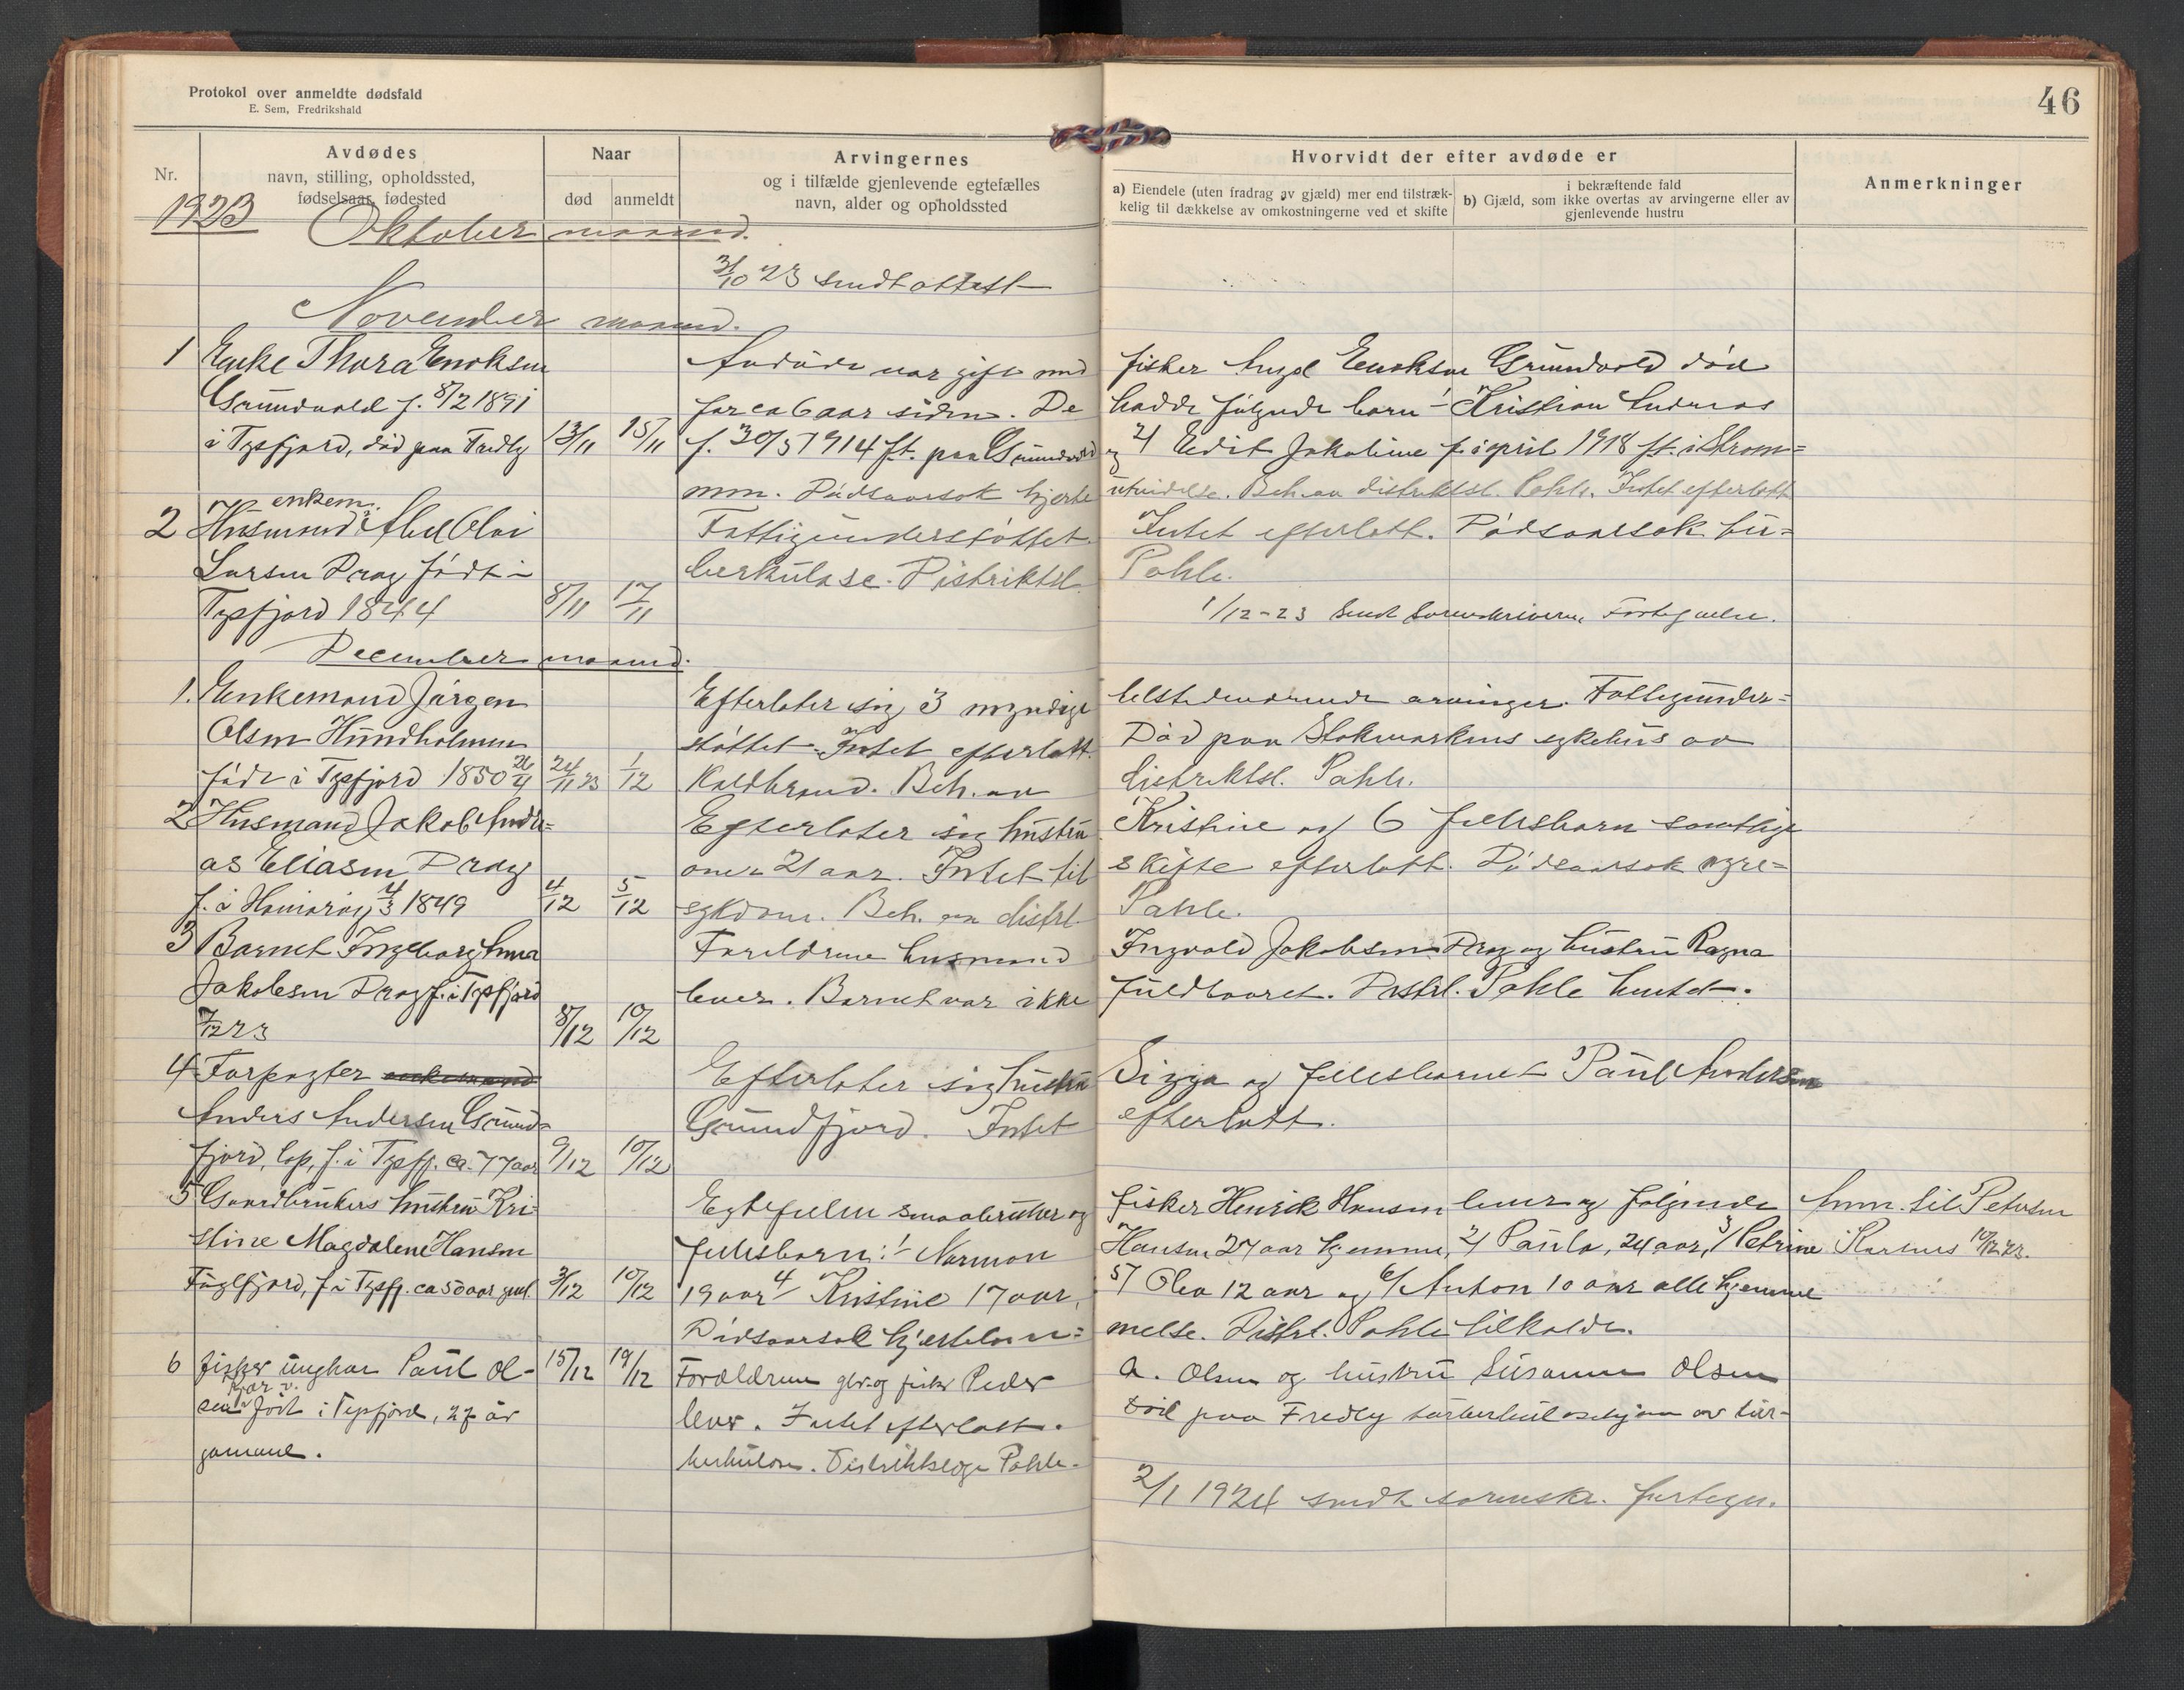 Protokol over anmeldte dødsfald
E. Sem, Fredrikshald
46
Nr.
Avdødes
navn, stilling, opholdssted,
fødselsaar, fødested
Naar
død
anmeldt
Arvingernes
og i tilfælde gjenlevende egtefælles
navn, alder og opholdssted
Hvorvidt der efter avdøde er
a) Eiendele (uten fradrag av gjæld) mer end tilstræk-
kelig til dækkelse av omkostningerne ved et skifte
b) Gjæld, som ikke overtas av arvingerne eller av
i bekræftende fald
gjenlevende hustru
Anmerkninger
1923 Oktober maaned.
31/10 23 sendt attest
November maaned.
1 Enke Thora Enoksen
Grundvold f. 8/2 1891
i Tysfjord, død paa Fredly 13/11 15/11
Avdøde var gift med fisker Enoksen Grundvold død
for ca 6 aar siden. De hadde følgende barn 1 Kristian Andreas
f. 30/5 1914 ft. paa Grundvold og 2/ Edit Jakobine f. i april 1918 ft. i Strøm=
mm. Dødsaarsak hjerteutvidelse. Beh. av distriktsl. Pahle. Intet efterlatt
2 Husmand enkem. Abel Olai
Larsen Drag født i
Tysfjord 1844 8/11 17/11
Fattigunderstøttet. Intet efterlatt. Dødsaarsak tu=
berkulose. Distriktsl. Pahle.
1/12-23 Sendt Sorenskriveren Fortegnelse.
December maaned.
1. Enkemand Jørgen
Olsen Hundholmen
født i Tysfjord 1850 26/4 24/11 23 1/12
Efterlater sig 3 myndige arvinger. Fattigunder=
støttet. Intet efterlatt. Død paa Stokmarknes sykehus av
Koldbrand. Beh. av distriktsl. Pahle.
2 Husmand Jakob Andre=
as Eliasen Drag
f. i Hamarøy 4/3 1849 4/12 5/12
Efterlater sig hustru Kristine og 6 fellesbarn samtlige
over 21 aar. Intet til skifte efterlatt. Dødsaarsak nyre=
sykdom. Beh. av distrl. Pahle.
3 Barnet Ingeborg Anna
Jakobsen Drag f. i Tysfjord
7/12 23 8/12 10/12
Foreldrene husmand Ingvald Jakobsen Drag og hustru Ragna
lever. Barnet var ikke fuldbaaret. Distrl. Pahle hentet.
4 Forpagter enkemand
Anders Andersen Grund=
fjord, lap, f. i Tysfj. ca. 77 aar 9/12 10/12
Efterlater sig hustru Sigga og fellesbarnet Paul Andersen
Grundfjord. Intet efterlatt.
5 Gaardbrukers hustru Kri=
stine Magdalene Hansen
Fuglfjord, f. i Tysfj. ca 50 aar gml. 3/12 10/12
Egtefellen smaabruker og fisker Henrik Hansen lever og følgende
fellesbarn: 1 Norman Hansen 27 aar hjemme, 2/ Paula, 24 aar, 3/ Petrine
19 aar 4/ Kristine 17 aar, 5/ Olea 12 aar og 6/ Anton 10 aar alle hjemme
Dødsaarsak hjertelam=melse. Distrl. Pahle tilkaldt.
Anm. til Petersen
Korsnes 10/12 23.
6 fisker ungkar Paul Ol-
sen Kjær v. født i Tysfjord, 27 år
gammel. 15/12 19/12
Forældrene gbr. og fisker Peder A. Olsen og hustru Susanna Olsen
lever. Intet efterlatt. død paa Fredly tuberkulosehjem av tu-
berkulose. Distriktslæge Pahle.
2/1 1924 sendt sorenskr. fortegn.